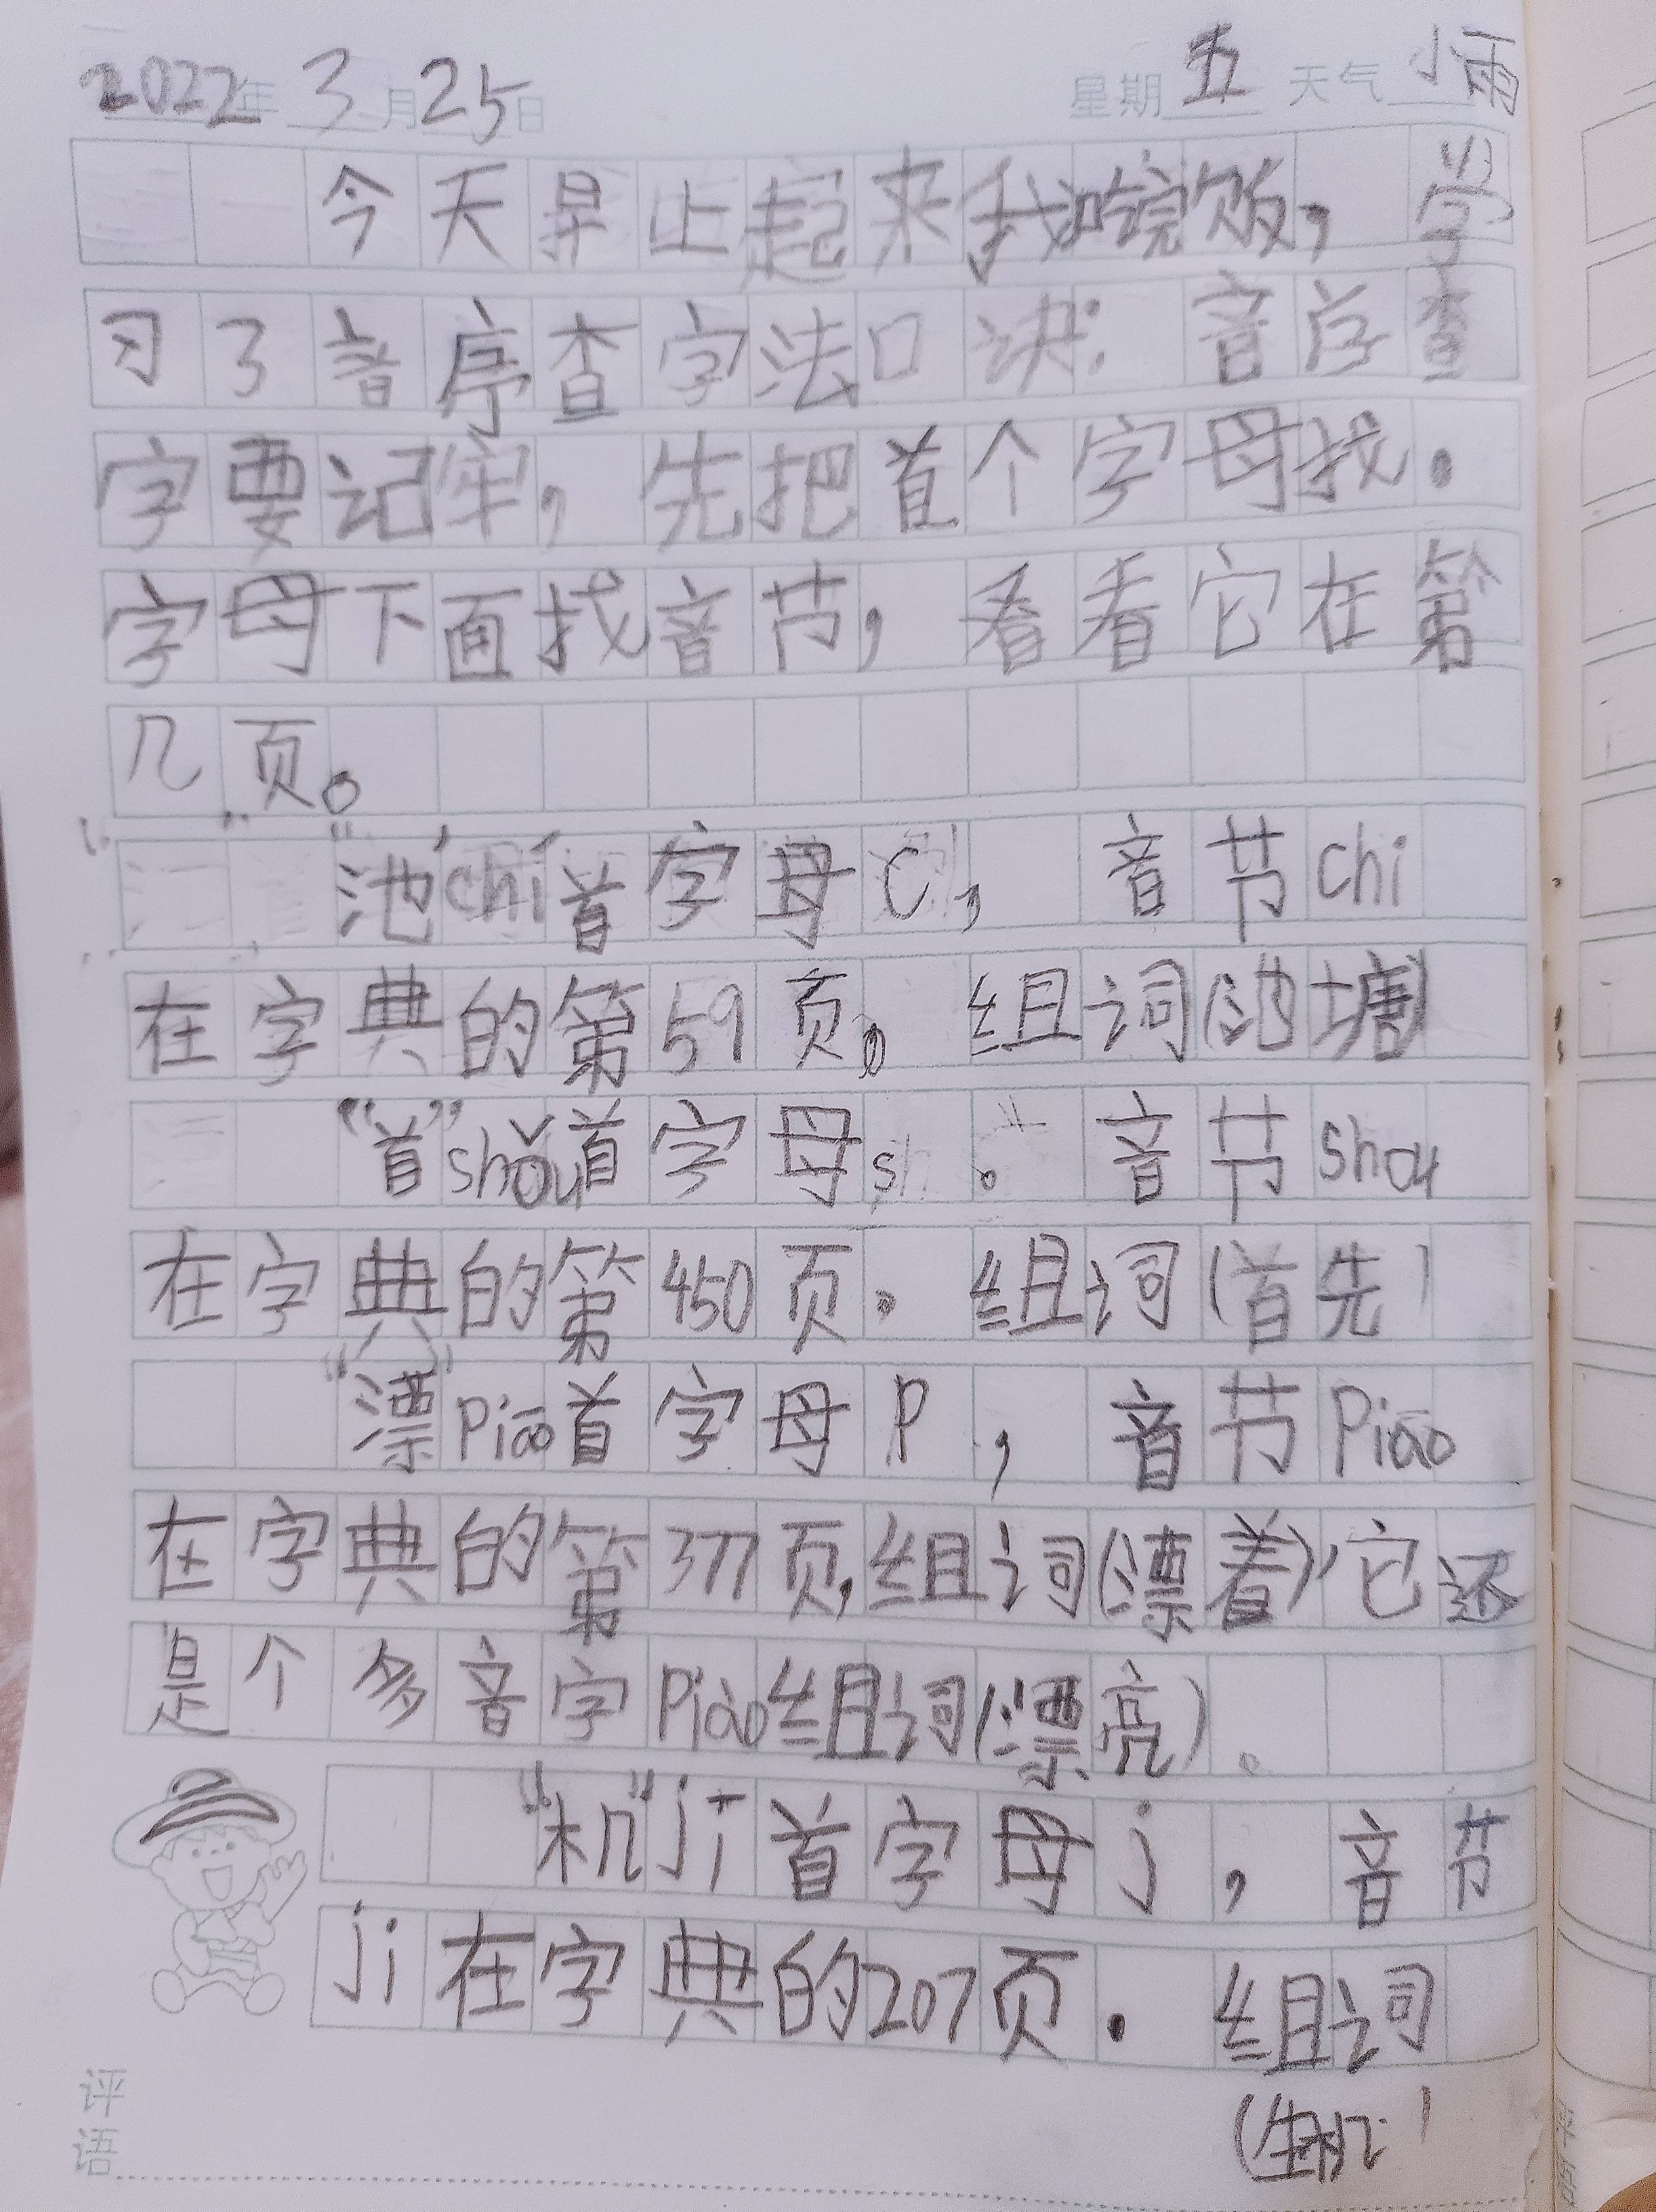 2022年 3月25日 星期五 天气小雨
今天早上起来我吃完饭，学
习了音序查字法口诀：音序查
字要记牢，先把首个字母找。
字母下面找音节，看看它在第
几页。
“池”chí首字母C，音节chi
在字典的第59页。组词(池塘)
“首”shǒu首字母sh。音节shou
在字典的第450页。组词(首先)
“漂”Piāo首字母P，音节Piāo
在字典的第377页，组词(漂着)，它还
是个多音字Piào组词(漂亮)。
“机”jī首字母j，音节
ji在字典的207页。组词
(生机)
评
语